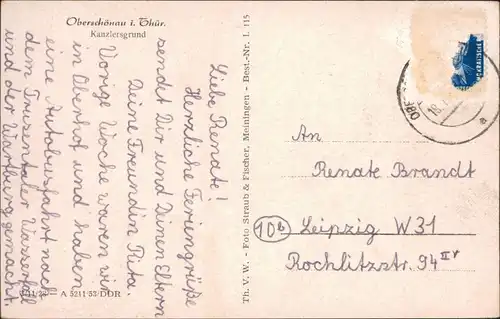 Oberschönau i. Thür.
Kanzlersgrund
Liebe Renate!
Herzliche Feriengrüße
sendet Dir und Deinen Eltern
Deine Freundin Ruta.
Vorige Woche waren wir
in Oberhof und haben
eine Autobusfahrt nach
dem Trusentaler Wasserfall
und der Wartburg gemacht.
A 5211/53/DDR
Th. V. W. - Foto Straub & Fischer, Meiningen - Best.-Nr. L 115
An
Renate Brandt
(10b) Leipzig W31
Rochlitzstr. 94 IV